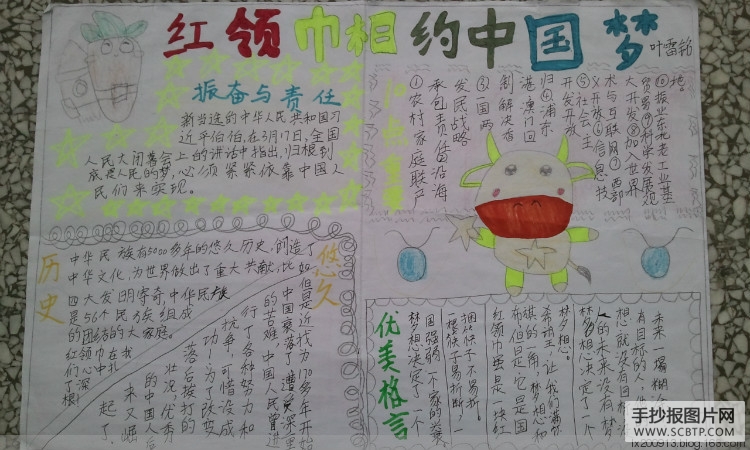 红领巾相约中国梦
叶雷铭
振奋与责任
新当选的中华人民共和国习
近平伯伯,在3月17日,全国
人民大闭幕会上的讲话中指出,归根到
底是人民的梦,必须紧紧依靠中国人
民们来实现。
①农村家庭联产
承包责任沿海
发民战略
③国两
制解决香
港澳门回
归④浦东
开发开放
⑤社会主
义开放⑥信息技
术与互联网⑦西部
大开发⑧加入世界
贸易⑨科学发展观
⑩振兴东北老工业基
地。
历史
悠久
中华民族有5000多年的悠久历史,创造了
中华文化,为世界做出了重大共献,比如
四大发明寄奇,中华民族
是56个民族组成
的团结的大家庭。
红领巾在我
们心深中扎
了根
但是近找为170多年开始
中国衰落了,遭受深里
的苦难,中国人民曾进
行了各种努力和
抗争,可惜没成
功!为了改变
落后挨打的
壮况,优秀
的中国人后
来又崛
起了
优美格言
未来一塌糊
有目标的人,
想就没有目
人的未来没有梦
梦想决定了一个
梦想。
亲萌主,让我们萧
旗的一角,梦想和
布,但是它是国
红领巾虽是一块红
捆筷子不易折。
一根筷子易折断,一
国强弱,一个家的兴
梦想决定了一个
手抄报图片网
WWW.SCBTP.COM
lx200913.blog.163.com